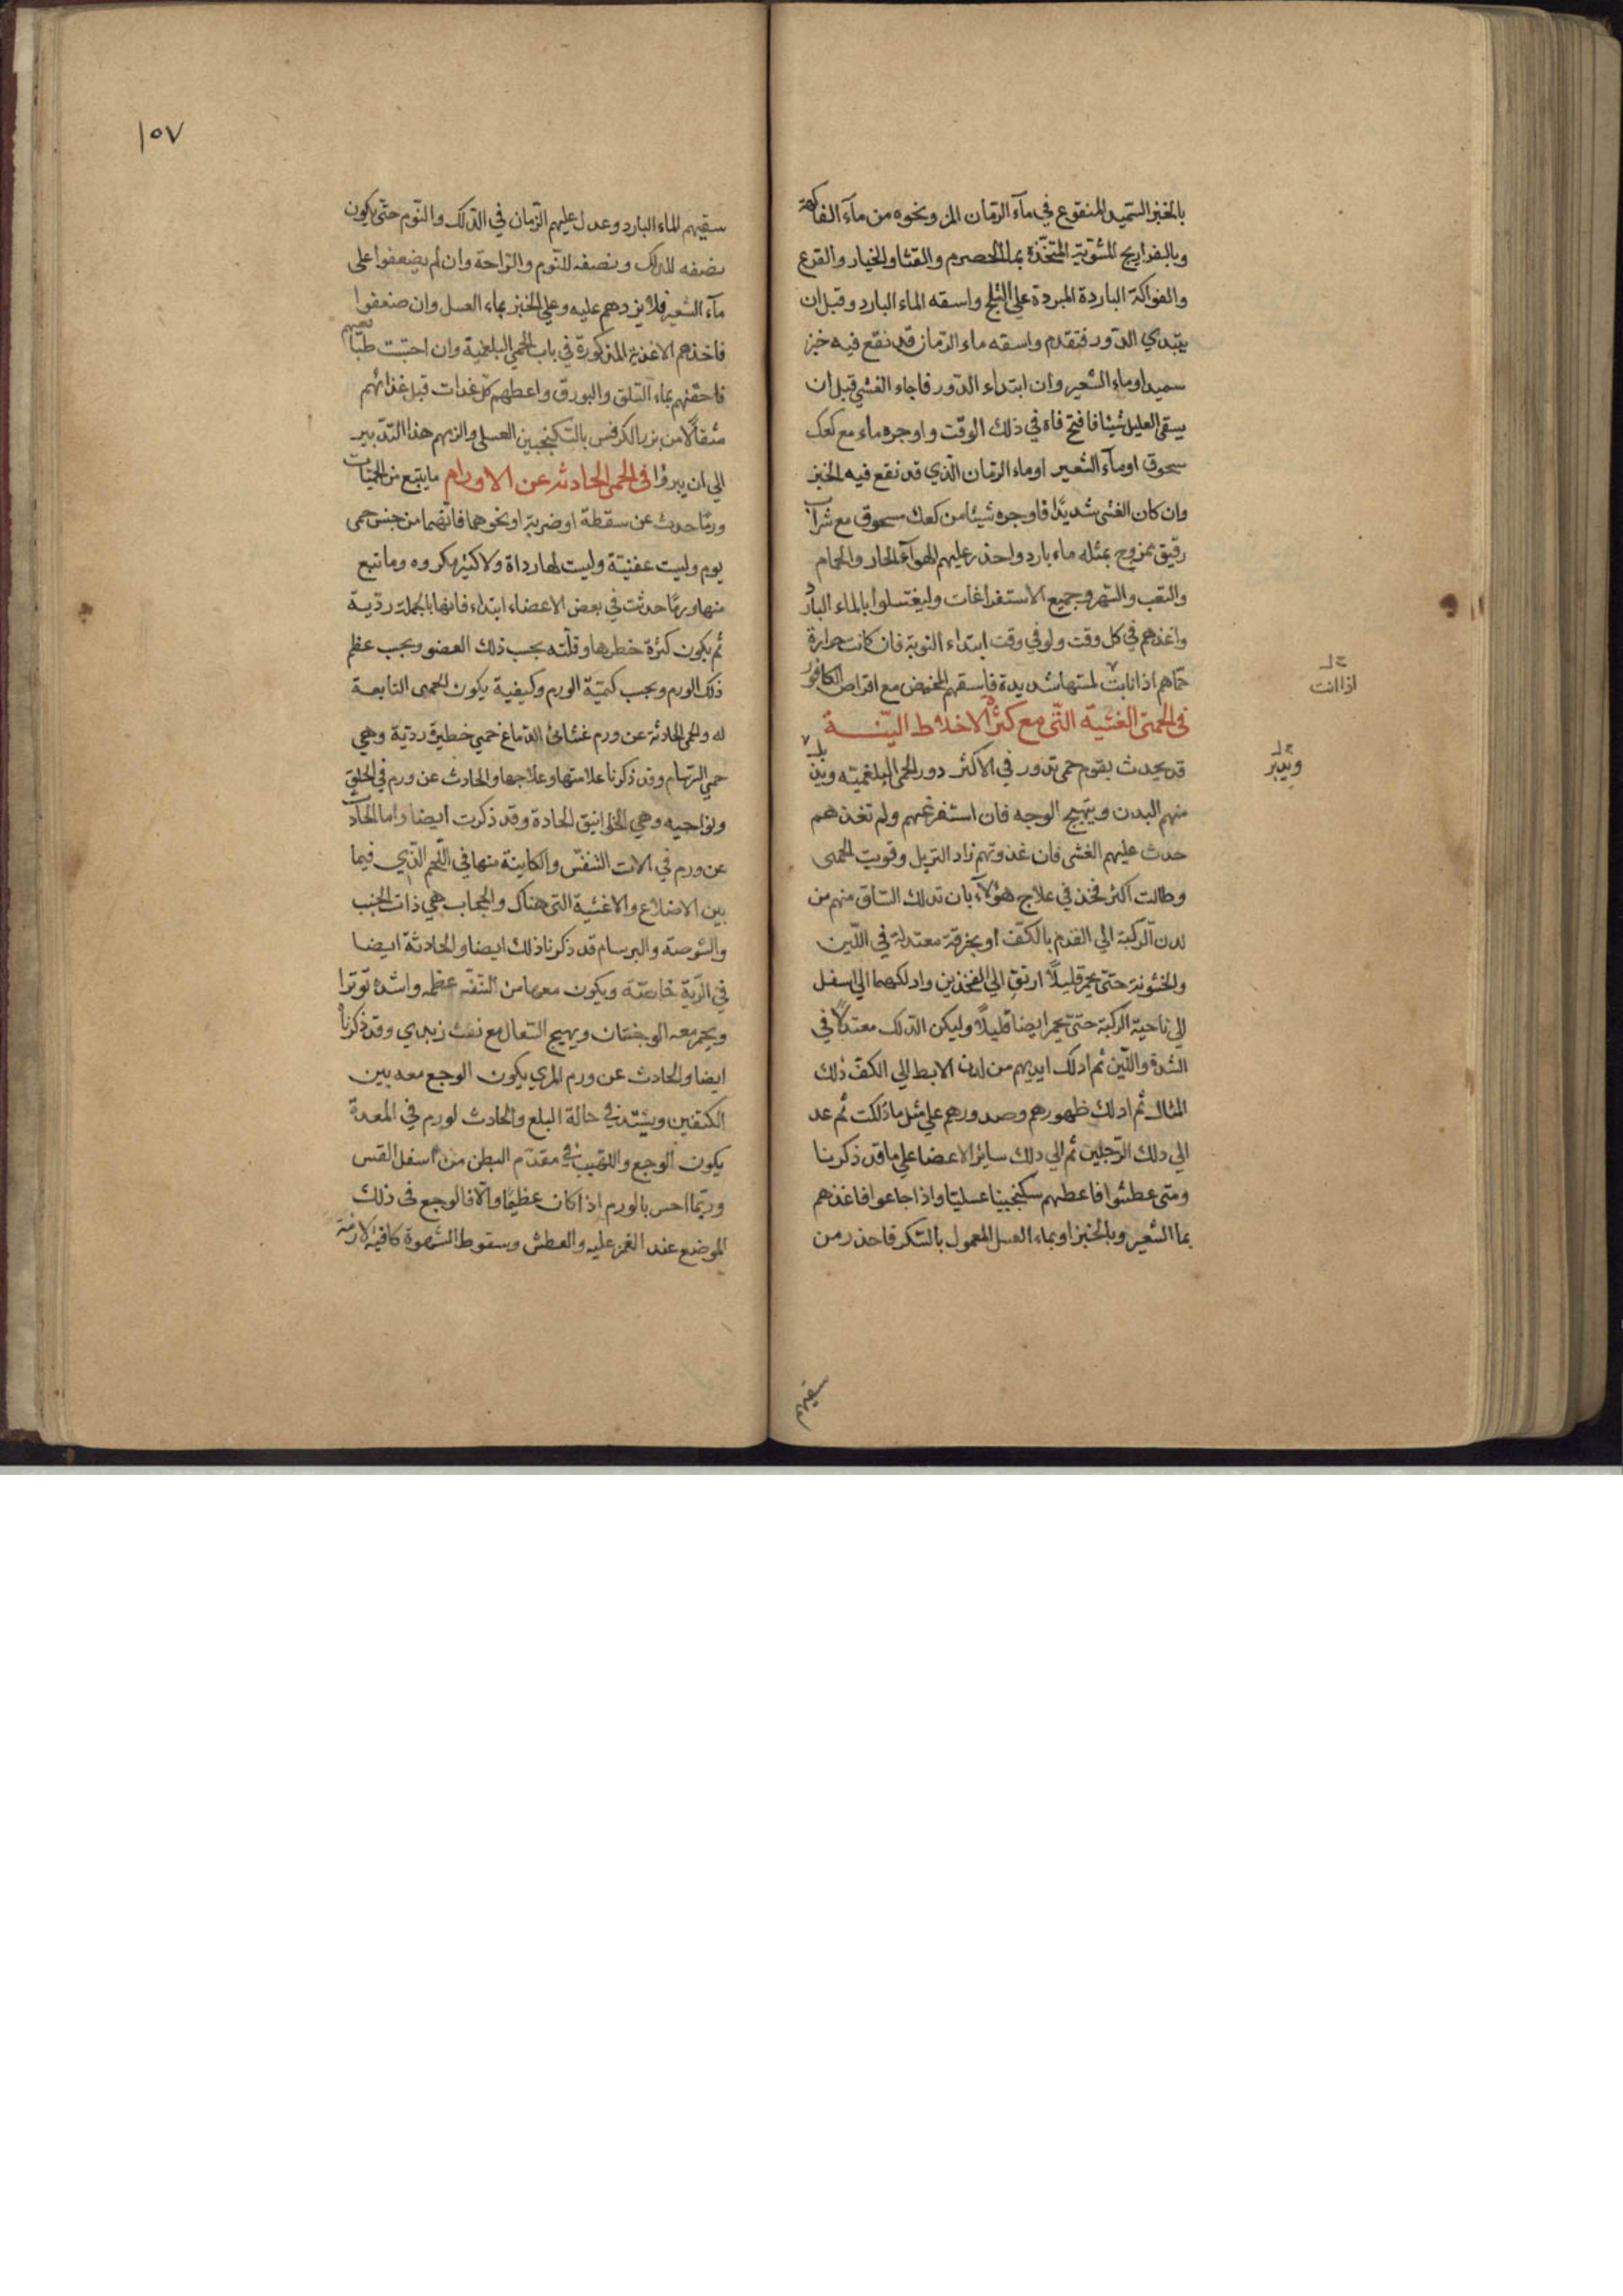 بالخبز السميد المنقوع في مآء الرمان المز ونحوه من مآء الفاكهة
وبالفراريج المشوية المتخذة بماء الحصرم والقثا والخيار والقرع
والفواكة الباردة المبردة علي الثلج واسقه الماء البارد وقبل ان
يبتدي الدور فتقدم واسقه ماء الرمان قد نقع فيه خبز
سميد او ماء الشعير وان ابتداء الدور فاجاء الغشي قبل ان
يسقي العليل شيئا فافتح فاه في ذلك الوقت واوجره ماء مع كعك
سحوق او مآء الشعير او ماء الرمان الذي قد نقع فيه الخبز
وان كان الغشي شديدًا فاوجره شيئا من كعك مسحوق مع شراب
رقيق ممزوج بمثله ماء بارد واحذر عليهم الهوآء الحار والحمام
والتعب والسهر وجميع الاستفراغات وليغتسلوا بالماء البارد
واغذهم في كل وقت ولو في وقت ابتداء النوبة فان كانت حرارة
حماهم اذا نابت لمستها شديدة فاسقهم المخيض مع اقراص الكافور
في الحمي الغشية التي مع كثرة الاخلاط النيئة
قد يحدث بقوم حمي تدور في الاكثر دور الحمي البلغمية
منهم البدن ويتهيج الوجه فان استفرغتهم ولم تغذهم
حدث عليهم الغشي فان غذوتهم زاد التربل وقويت الحمي
وطالت اكثر فخذ في علاج هؤلآء بان تدلك الساق منهم من
لدن الركبة الي القدم بالكف او بخرقة معتدلة في اللين
والخشونة حتي يحمر قليلًا ارتق الي الفخذين وادلكهما الي اسفل
الي ناحية الركبة حتي يحمر ايضا قليلًا وليكن الدلك معتدلًا في
الشدة واللين ثم ادلك ايديهم من لدن الابط الي الكف ذلك
المثال ثم ادلك ظهورهم وصدورهم علي مثل ما دلكت ثم عد
الي دلك الرجلين ثم الي دلك سائر الاعضا علي ما قد ذكرنا
ومتي عطشوا فاعطهم سكنجبينا عسليا واذا جاعوا فاغذهم
بما الشعير وبالخبز او بماء العسل المعمول بالسكر فاحذر من
اذا انت
سقيهم
١٥٧
سقيهم الماء البارد وعدل عليهم الزمان في الدلك والنوم حتي يكون
نصفه للدلك ونصفه للنوم والراحة وان لم يضعفوا علي
مآء الشعير فلا يزدهم عليه وعلي الخبز بماء العسل وان ضعفوا
فاغذهم الاغذية المذكورة في باب الحمي البلغمية وان احتبست طبائعهم
فاحقنهم بماء السلق والبورق واعطهم كل غدات قبل غذائهم
مثقالًا من بزر الكرفس بالسكنجبين العسلي والزمهم هذا التدبير
الي ان يبروا في الحمي الحادثه عن الاورام ما يتبع من الحميات
ورمًا حدث عن سقطة او ضربة او نحوهما فانهما من جنس حمي
يوم وليست عفنية وليست لها رداة ولا كثير مكروه وما تبع
منها ورمًا حدثت في بعض الاعضاء ابتداء فانها بالجملة رديه
ثم يكون كثرة خطرها وقلته بحسب ذلك العضو وبحسب عظم
ذلك الورم وبحسب كمية الورم وكيفية يكون الحمي التابعة
له والحمي الحادثة عن ورم غشائي الدماغ حمي خطيرة ردية وهي
حمي السرسام وقد ذكرنا علامتها وعلاجها والحادث عن ورم في الحلق
ونواحيه وهي الخوانيق الحادة وقد ذكرت ايضا واما الحادث
عن ورم في الات التنفس والكاينة منها في اللحم الذي فيما
بين الاضلاع والاغشية التي هناك والحجاب هي ذات الجنب
والشوصة والبرسام قد ذكرنا ذلك ايضا والحادثة ايضا
في الرية خاصة ويكون معها من التنفس عظمه واشده توترا
ويحمر معه الوجنتان ويهيج السعال مع نفث زبدي وقد ذكرناه
ايضا والحادث عن ورم المري يكون الوجع معه بين
الكتفين ويشتد في حالة البلع والحادث لورم في المعدة
يكون الوجع واللهيب في مقدم البطن من اسفل القس
وربما احس بالورم اذا كان عظيما والا فالوجع في ذلك
الموضع عند الغمز عليه والعطش وسقوط الشهوة كافية لازمة